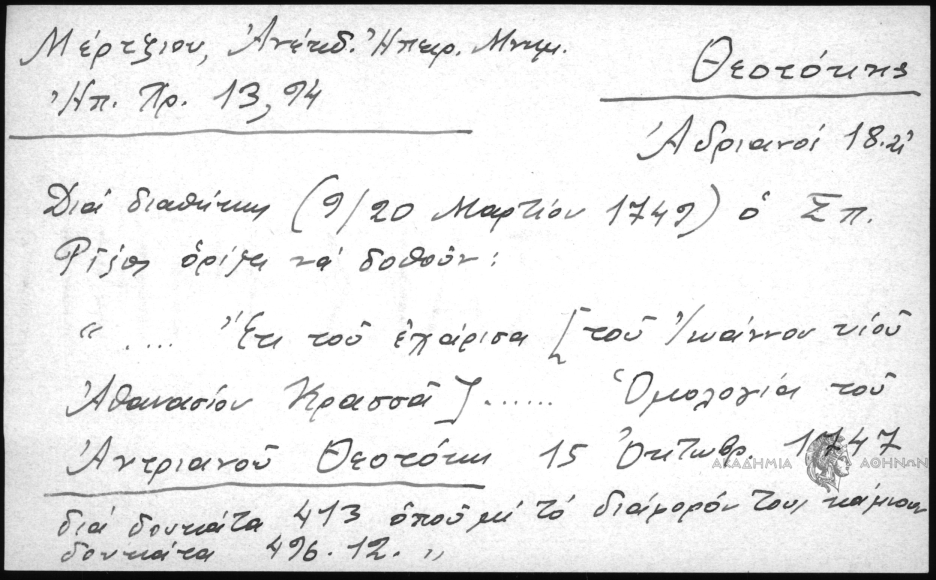 Μέρτζιου, Ἀνέκδ. Ἠπειρ. Μνημ.
Ἠπ. Χρ. 13, 94
Θεοτόκης
Ἀδριανοί 18.
Διά διαθήκης (9/20 Μαρτίου 1749) ὁ Σπ.
Ρίζος ὁρίζει νά δοθοῦν:
“ .... Ἔτι τοῦ ἐχάρισα [τοῦ Ἰωάννου υἱοῦ
Ἀθανασίου Κρασσᾶ] ...... Ὁμολογία τοῦ
Ἀντριανοῦ Θεοτόκη 15 Ὀκτωβρ. 1747
διά δουκάτα 413 ὁποῦ μέ τό διάφορόν τους κάμνουν
δουκάτα 496.12. „
ΑΚΑΔΗΜΙΑ ΑΘΗΝΩΝ